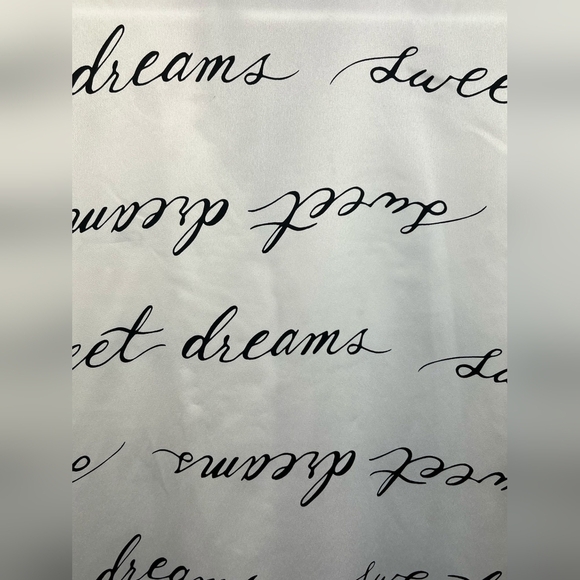 dreams swee
sweet dream
eet dreams sw
weet dreams
dreams swee